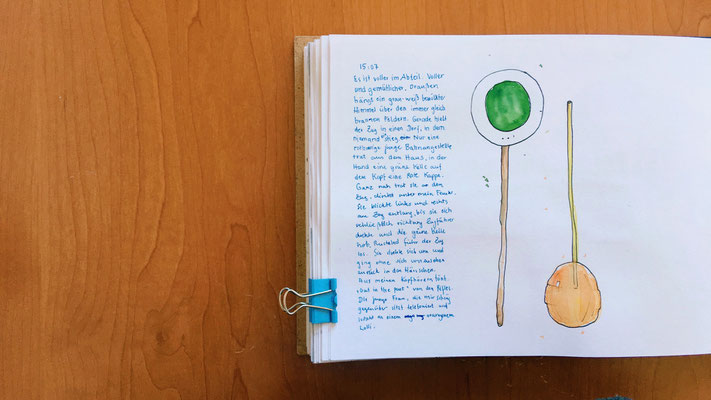 15:07
Es ist voller im Abteil. Voller
und gemütlicher. Draußen
hängt ein grau-weiß bewölkter
Himmel über den immer gleich
braunen Feldern. Gerade hielt
der Zug in einem Dorf, in dem
niemand stieg. Nur eine
junge Bahnangestellte
trat aus dem Haus, in der
Hand eine grüne Kelle auf
dem Kopf eine Rote Kappe.
Ganz nah trat sie an den
Zug, direkt unter mein Fenster.
Sie blickte links und rechts
am Zug entlang, bis sie sich
schließlich Richtung Zugführer
drehte und die grüne Kelle
hob. Ruckelnd fuhr der Zug
los. Sie drehte sich um und
ging ohne sich umzusehen
zurück in das Häuschen.
Aus meinen Kopfhörern tönt
"Out in the past" von den
Die junge Frau, die mir schräg
gegenüber sitzt telefoniert und
lutscht an einem orangenem
Lolli.